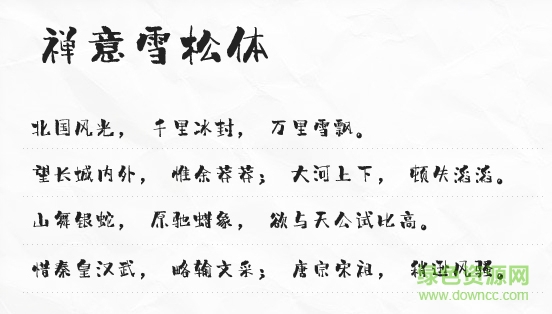 禅意雪松体
北国风光， 千里冰封， 万里雪飘。
望长城内外， 惟余莽莽； 大河上下， 顿失滔滔。
山舞银蛇， 原驰蜡象， 欲与天公试比高。
惜秦皇汉武， 略输文采； 唐宗宋祖， 稍逊风骚。
绿色资源网
www.downcc.com